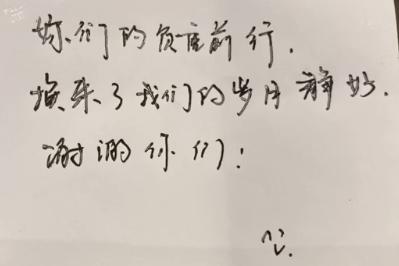 你们的负重前行.
换来了我们的岁月静好.
谢谢你们!